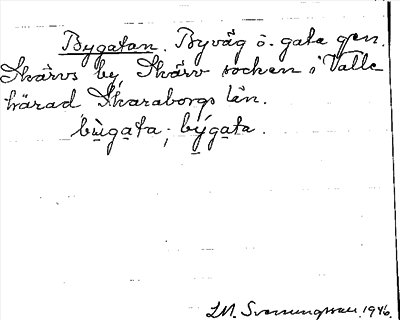 Bygatan. Byväg o. gata gen.
Skärvs by, Skärv socken i Valle
härad Skaraborgs län.
bùgata; býgata.
1946.